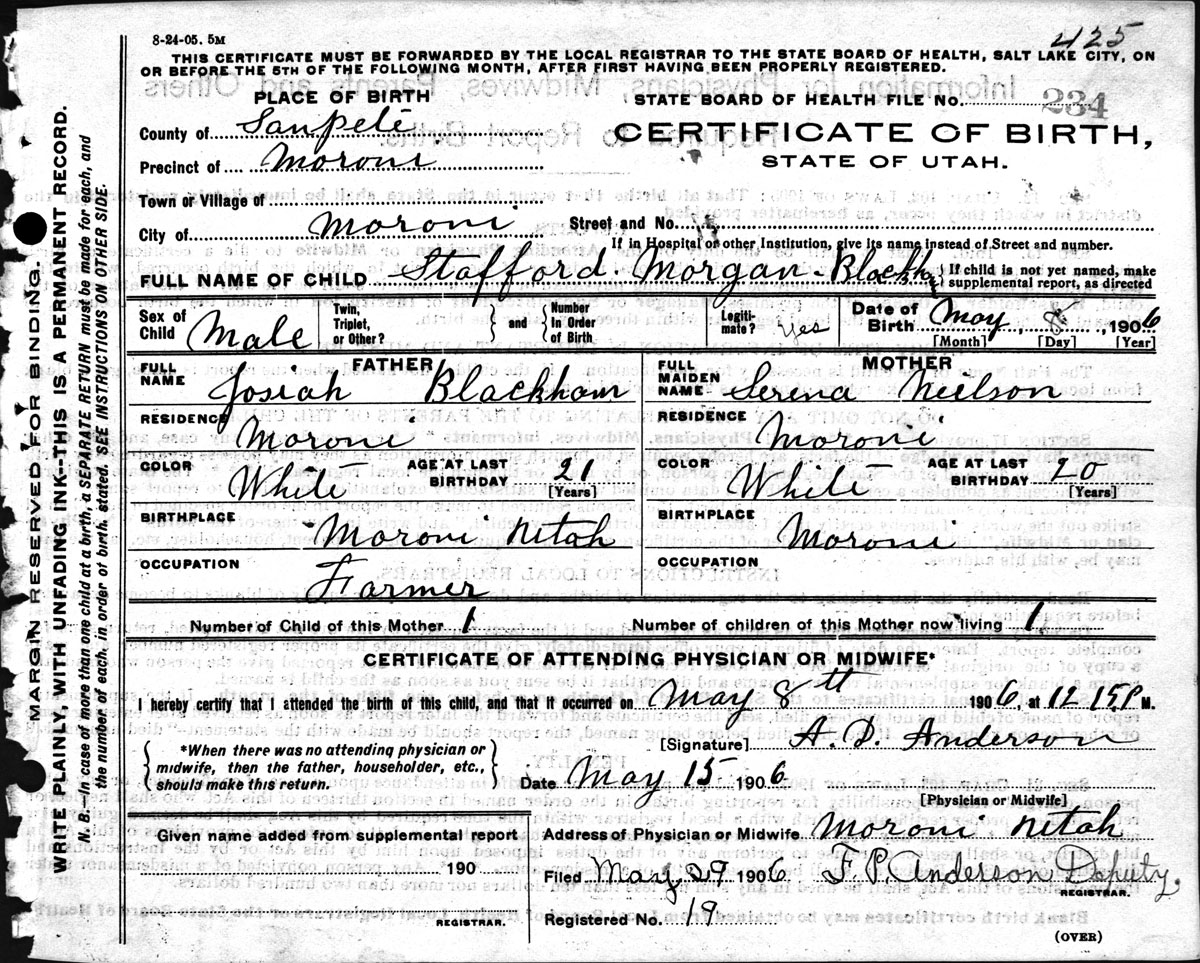 425
8-24-05. 5M
THIS CERTIFICATE MUST BE FORWARDED BY THE LOCAL REGISTRAR TO THE STATE BOARD OF HEALTH, SALT LAKE CITY, ON
OR BEFORE THE 5TH OF THE FOLLOWING MONTH, AFTER FIRST HAVING BEEN PROPERLY REGISTERED.
PLACE OF BIRTH
STATE BOARD OF HEALTH FILE No. 234
County of Sanpete
CERTIFICATE OF BIRTH,
Precinct of Moroni
STATE OF UTAH.
Town or Village of
City of Moroni Street and No.
If in Hospital or other Institution, give its name instead of Street and number.
FULL NAME OF CHILD Stafford Morgan Blackham { If child is not yet named, make supplemental report, as directed
Sex of Child Male Twin, Triplet, or Other? } and { Number In Order of Birth Legiti-mate? Yes Date of Birth May, 8, 1906
[Month] [Day] [Year]
FATHER
FULL NAME Josiah Blackham
RESIDENCE Moroni
COLOR White AGE AT LAST BIRTHDAY 21 [Years]
BIRTHPLACE Moroni Utah
OCCUPATION Farmer
MOTHER
FULL MAIDEN NAME Serena Neilson
RESIDENCE Moroni
COLOR White AGE AT LAST BIRTHDAY 20 [Years]
BIRTHPLACE Moroni
OCCUPATION
Number of Child of this Mother 1 Number of children of this Mother now living 1
CERTIFICATE OF ATTENDING PHYSICIAN OR MIDWIFE*
I hereby certify that I attended the birth of this child, and that it occurred on May 8th 1906, at 12 15 P M.
{ *When there was no attending physician or midwife, then the father, householder, etc., should make this return. }
[Signature] A. D. Anderson
Date May 15 1906
[Physician or Midwife]
Given name added from supplemental report
190
REGISTRAR.
Address of Physician or Midwife Moroni Utah
Filed May 27 1906. F. P. Anderson Deputy
REGISTRAR.
Registered No. 19
(OVER)
MARGIN RESERVED FOR BINDING.
WRITE PLAINLY, WITH UNFADING INK--THIS IS A PERMANENT RECORD.
N. B. In case of more than one child at a birth, a SEPARATE RETURN must be made for each, and
the number of each, in order of birth, stated. SEE INSTRUCTIONS ON OTHER SIDE.